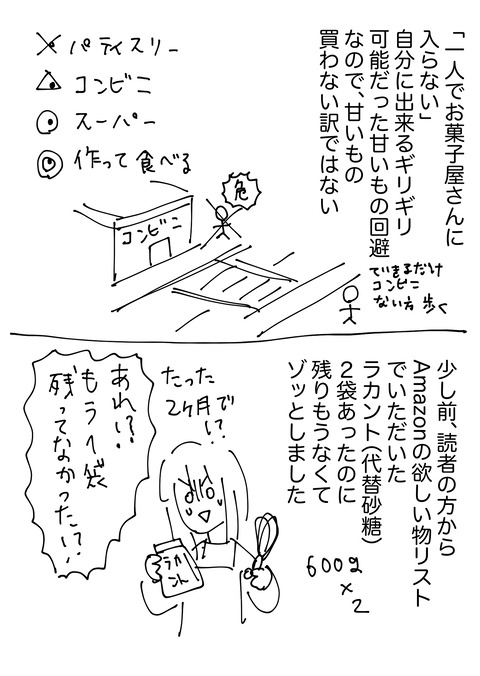 「一人でお菓子屋さんに
入らない」
自分に出来るギリギリ
可能だった甘いもの回避
なので、甘いもの
買わない訳ではない
× パティスリー
△ コンビニ
○ スーパー
◎ 作って食べる
危
コンビニ
できるだけ
コンビニ
ない方 歩く
少し前、読者の方から
Amazonの欲しい物リスト
でいただいた
ラカント(代替砂糖)
2袋あったのに
残りもうなくて
ゾッとしました
600g
×
2
たった
2ヶ月で
!?
あれ!?
もう1袋
残ってなかったっけ!?
ラカ
ント